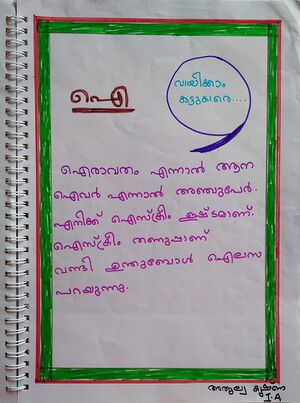 ഐ
വായിക്കാം
കൂട്ടുകാരെ....
ഐരാവതം എന്നാൽ ആന
ഐവർ എന്നാൽ അഞ്ചുപേർ.
എനിക്ക് ഐസ്ക്രീം ഇഷ്ടമാണ്.
ഐസ്ക്രീം തണുപ്പാണ്
വണ്ടി ഉന്തുമ്പോൾ ഐലസ
പറയുന്നു.
അതുല്യ കൃഷ്ണ
I A